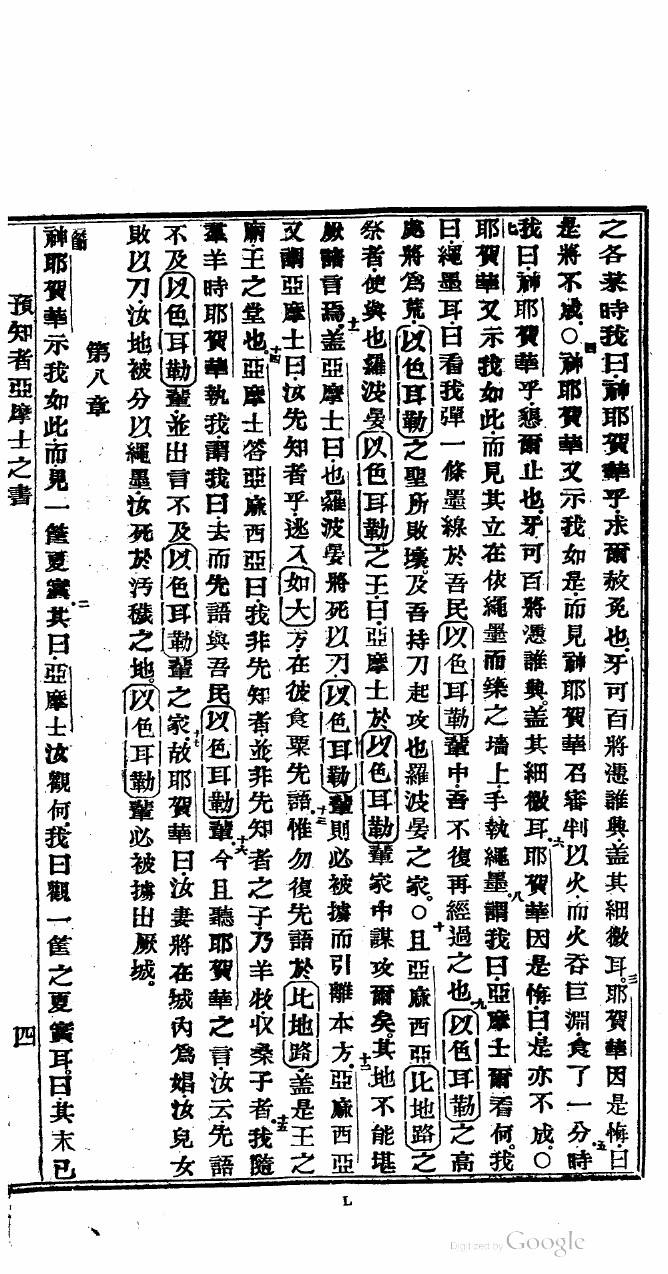 之各菜時我曰神耶賀華乎求爾赦免也牙可百將憑誰興盖其細微耳三耶賀華因是悔曰
是將不成〇四神耶賀華又示我如是而見神耶賀華召審判以火而火吞巨淵食了一分時五
我曰神耶賀華乎懇爾止也牙可百將憑誰興盖其細微耳六耶賀華因是悔曰是亦不成〇
七耶賀華又示我如此而見其立在依繩墨而築之墻上手執繩墨八謂我曰亞摩士爾看何我
曰繩墨耳曰看我彈一條墨線於吾民以色耳勒輩中吾不復再經過之也九以色耳勒之高
處將為荒以色耳勒之聖所敗壞及吾持刀起攻也羅波晏之家〇十且亞麻西亞比地路之
祭者使與也羅波晏以色耳勒之王曰亞摩士於以色耳勒輩家中謀攻爾矣其地不能堪
厥諸言焉十一盖亞摩士曰也羅波晏將死以刀以色耳勒輩則必被擄而引離本方十二亞麻西亞
又謂亞摩士曰汝先知者乎逃入如大方在彼食粟先語十三惟勿復先語於比地路盖是王之
廟王之堂也十四亞摩士答亞麻西亞曰我非先知者並非先知者之子乃羊牧收桑子者十五我隨
羣羊時耶賀華執我謂我曰去而先語與吾民以色耳勒輩十六今且聽耶賀華之言汝云先語
不及以色耳勒輩並出言不及以色耳勒輩之家十七故耶賀華曰汝妻將在城內為娼汝兒女
敗以刀汝地被分以繩墨汝死於汚穢之地以色耳勒輩必被擄出厥城
第八章
神耶賀華示我如此而見一筐夏實二其曰亞摩士汝觀何我曰觀一筐之夏實耳曰其末已
預知者亞摩士之書
四
L
Digitized by Google